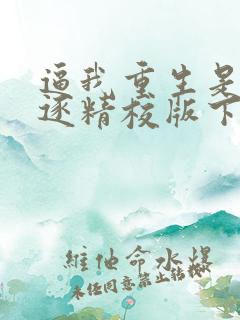 逼我重生是
逐精校版下
維他命水爆
未经同意禁止转载